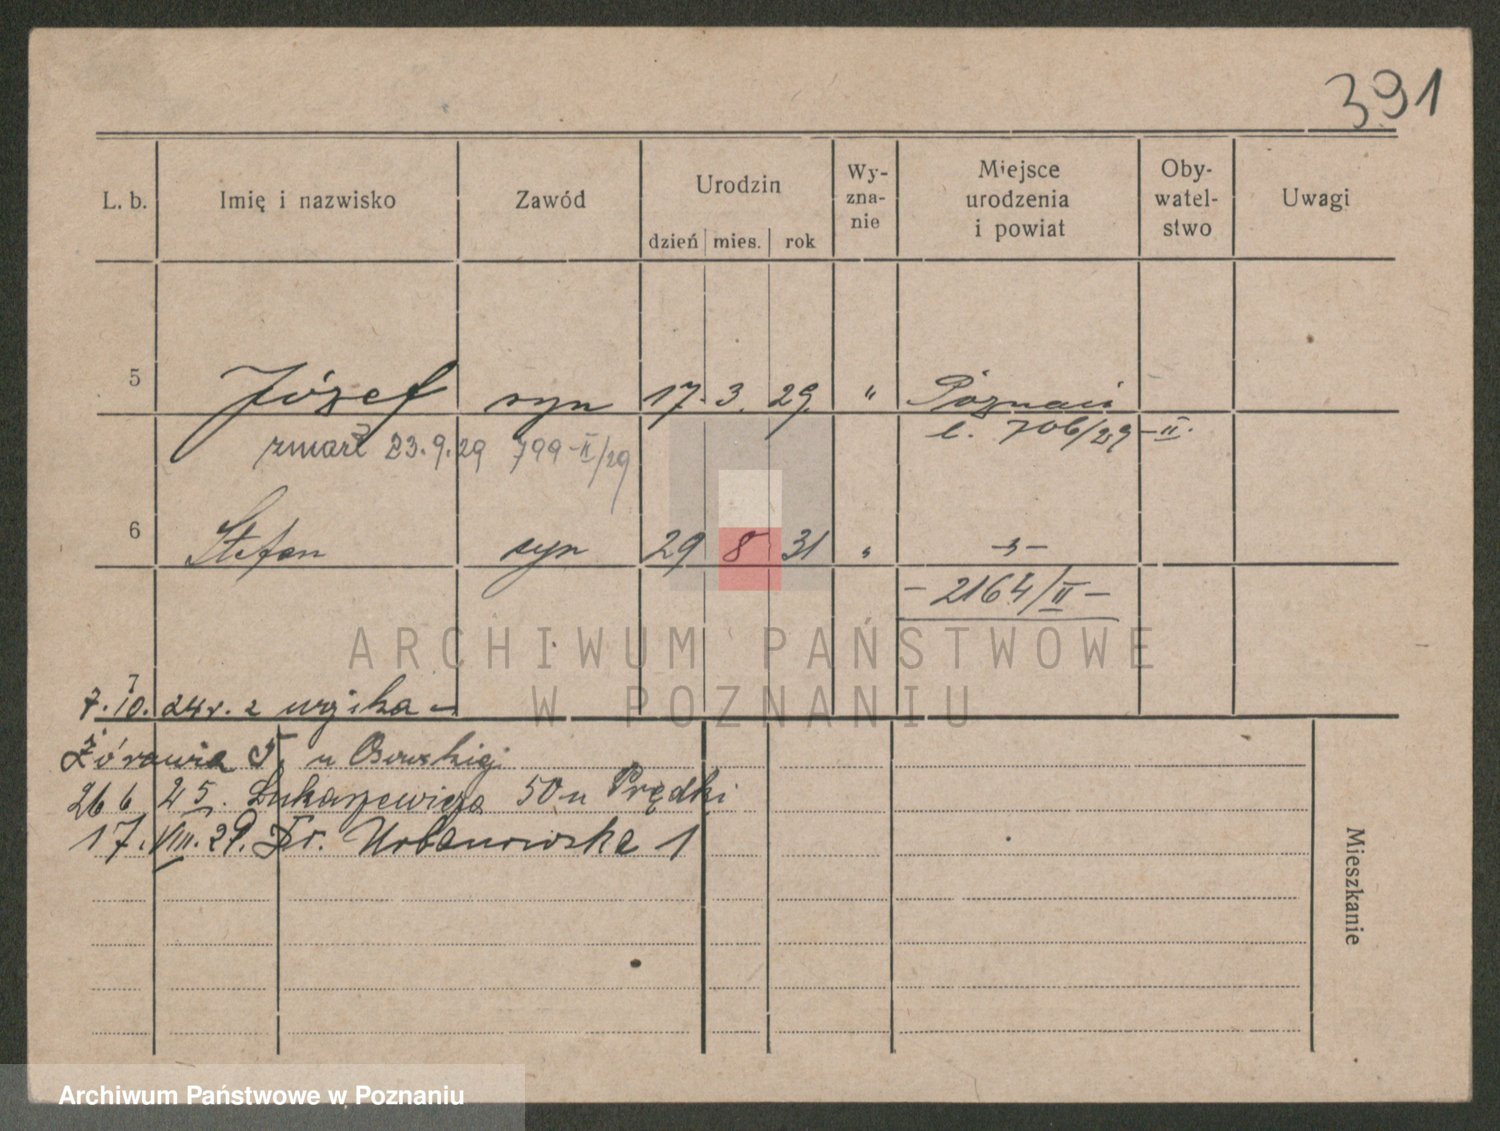 391
L. b. Imię i nazwisko Zawód Urodzin dzień mies. rok Wy-zna-nie Miejsce urodzenia i powiat Oby-watel-stwo Uwagi
5 Józef syn 17. 3. 29. " Poznań
zmarł 23.9.29 799-II/29 l. 706/29-II.
6 Stefan syn 29 8 31 "
- 2164/II -
ARCHIWUM PAŃSTWOWE
W POZNANIU
7
7.10. 24 r. z
Żórawia 5 u
26 6 25. Łukaszewicza 50 u Prędki
17. VIII. 29. Dr. Urbanowska 1
Mieszkanie
Archiwum Państwowe w Poznaniu